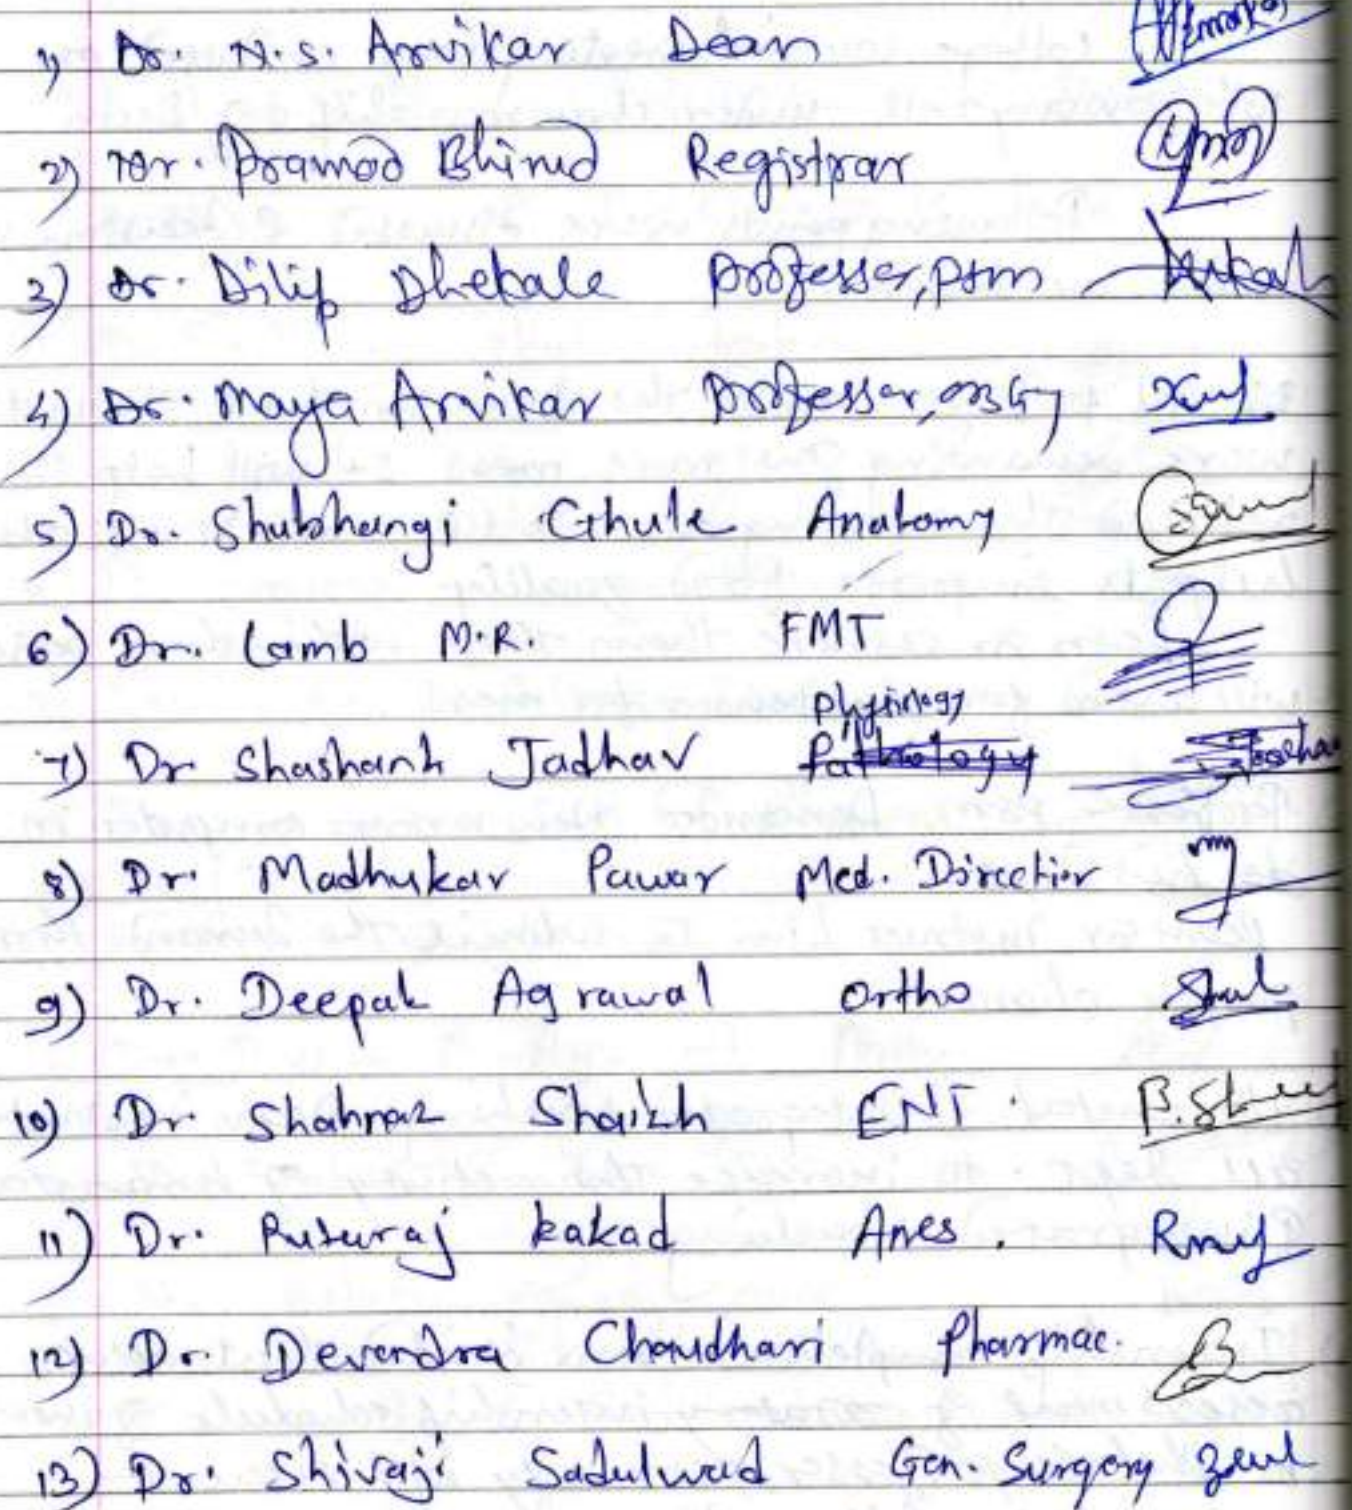 1) Dr. N.S. Arvikar Dean
2) Mr. Pramod Bhind Registrar
3) Dr. Dilip Dhekale Professor, PSM
4) Dr. Maya Arvikar Professor, OBGY
5) Dr. Shubhangi Ghule Anatomy
6) Dr. Lamb M.R. FMT
physiology
7) Dr Shashank Jadhav Pathology
8) Dr. Madhukar Pawar Med. Director
9) Dr. Deepak Agrawal Ortho
10) Dr Shahnaz Shaikh ENT.
11) Dr. Ruturaj kakad Anes.
12) Dr. Devendra Choudhari Pharmac.
13) Dr. Shivaji Sadulwad Gen. Surgery